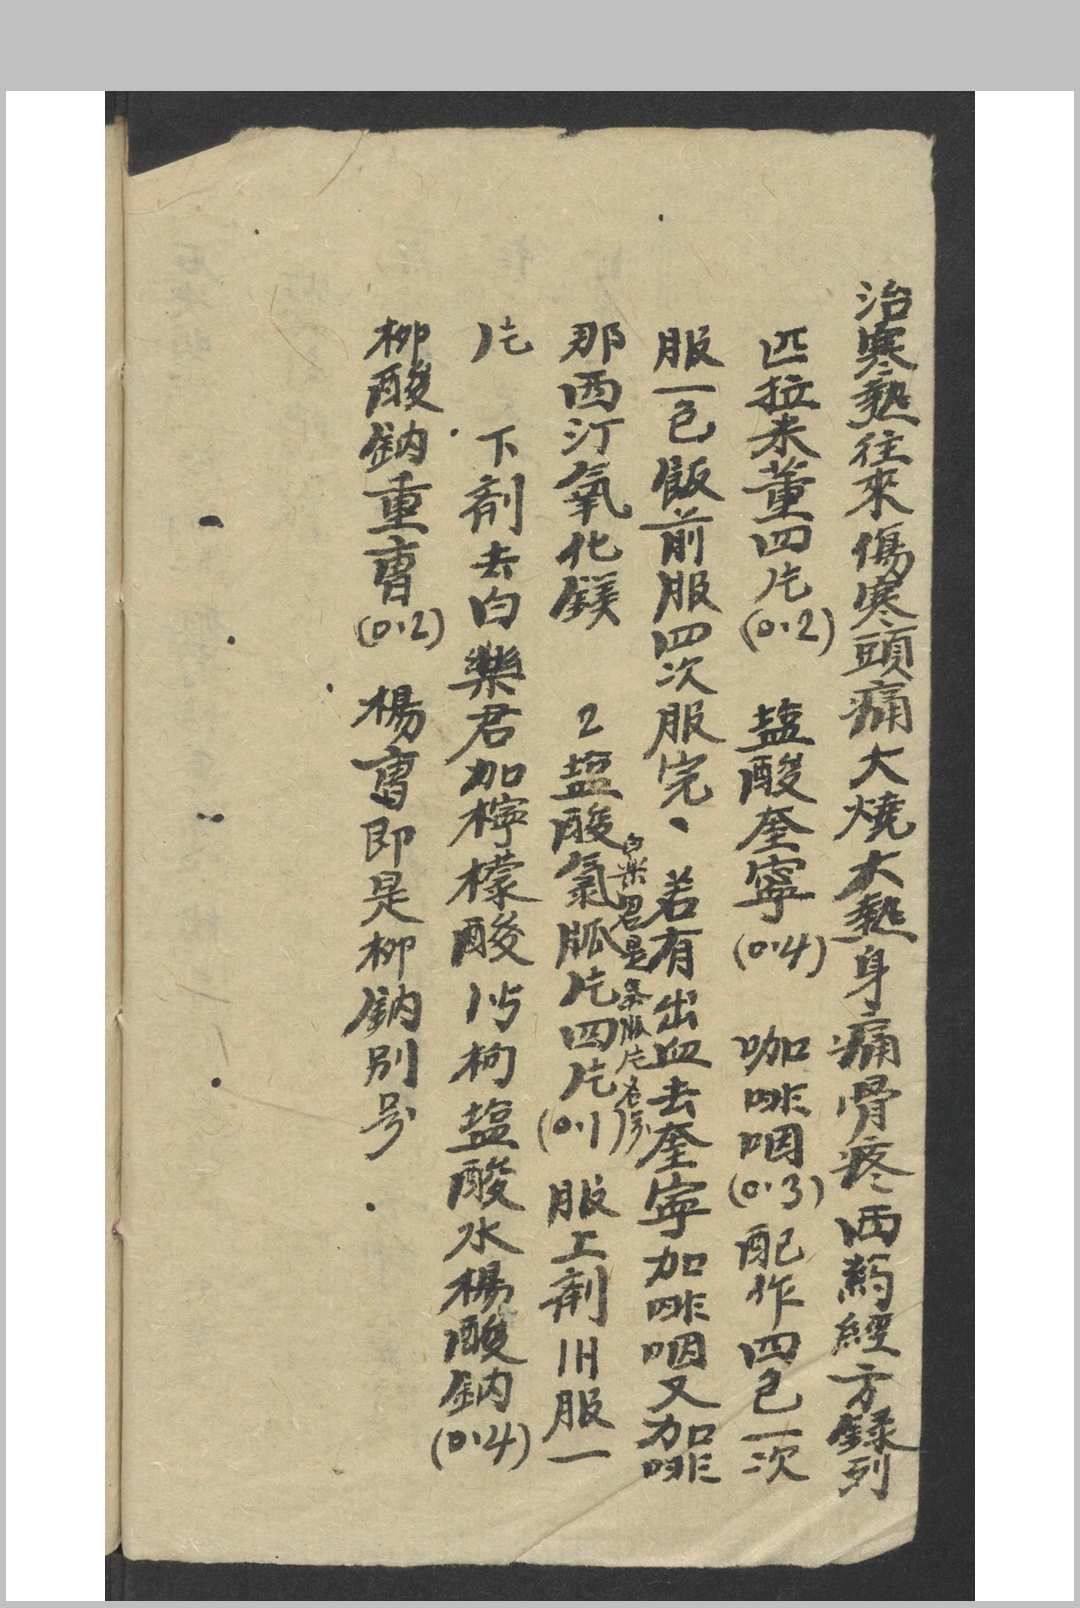 治寒熱往來傷寒頭痛大燒大熱身痛骨疼西葯經方錄列
匹拉米董四片(0.2) 盐酸奎寧(0.4) 咖啡咽(0.3)配作四包一次
服一包飯前服四次服完、若有出血去奎寧加啡咽又加啡
白樂君是氯胍片名号
那西汀氧化鎂 2盐酸氯胍片四片(0.1)服上剤1H服一
片 下剤去白樂君加檸檬酸 枸盐酸水楊酸鈉(0.4)
柳酸鈉重曹(0.2) 楊曹即是柳鈉别号.